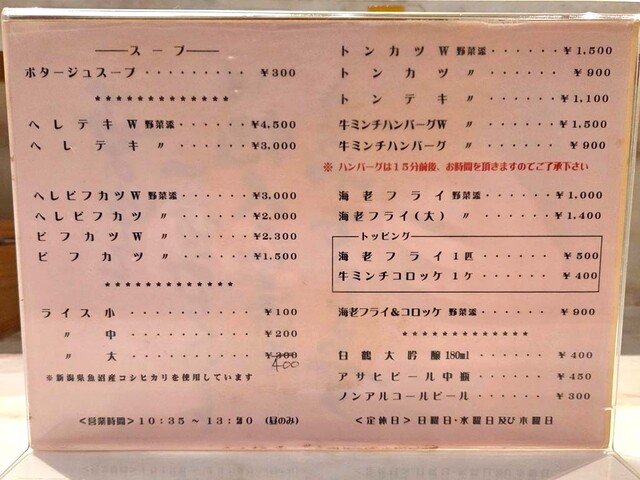 スープ
ポタージュスープ・・・・・・・・・¥300
*************
ヘレテキW 野菜添・・・・・・¥4,500
ヘレテキ 〃・・・・・・¥3,000
ヘレビフカツW 野菜添・・・・・¥3,000
ヘレビフカツ 〃・・・・・・¥2,000
ビフカツW 〃・・・・・・¥2.300
ビフカツ 〃・・・・・・¥1,500
*************
ライス小・・・・・・・・・¥100
〃 中・・・・・・・・・¥200
〃 大・・・・・・・・・¥300
400
※新潟県魚沼産コシヒカリを使用しています
<営業時間>10:35~13:
(昼のみ)
トンカツW 野菜添・・・・・・¥1,500
トンカツ 〃・・・・・・・¥900
トンテキ 〃・・・・・・¥1,100
牛ミンチハンバーグW 〃・・・・・¥1,500
牛ミンチハンバーグ 〃・・・・・・¥900
※ ハンバーグは15分前後、お時間を頂きますのでご了承下さい
海老フライ 野菜添・・・・・¥1,000
海老フライ(大) 〃・・・・・¥1,400
トッピング
海老フライ1匹・・・・・・¥500
牛ミンチコロッケ1ケ・・・・・・¥400
海老フライ&コロッケ 野菜添・・・・・¥900
*************
白鶴大吟醸180ml・・・・・・・¥400
アサヒビール中瓶・・・・・・¥450
ノンアルコールビール・・・・・¥300
<定休日>日曜日・水曜日及び木曜日